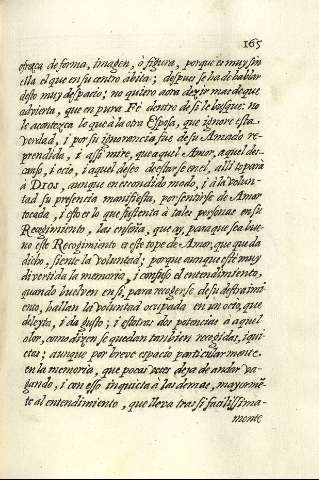 165
ofrezca de forma, imagen, ò figura, porque es muy sin
ella el que en su centro abita; despues se ha de hablar
desto muy despacio; no quiero aora dezir mas de que
advierta, que en pura Fè dentro de si le busque: no
le acontezca lo que à la otra Esposa, que ignorò esta
verdad, i por su ignorancia fue de su Amado re-
prendida, i assi mire, que aquel Amor, aquel des-
canso, i ocio, i aquel deseo de estarse en el, alli topará
à DIOS, aunque en escondido modo, i à la volun-
tad su presencia manifiesta, por sentirse de Amor
tocada, i esto es lo que sustenta à tales personas en su
Recogimiento, i las enseña, que ay, para que sea bue-
no este Recogimiento a este tope de Amor, que queda
dicho, siente la voluntad; porque aunque esté muy
divertida la memoria, i confuso el entendimiento,
quando buelven en si, para recogerse, de su destraimi-
ento, hallan la voluntad ocupada en un octo, que
deleyta, i da gusto; i estotras dos potencias a aquel
olor, como dizen se quedan tanbien recogidas, i qui-
etas; aunque por breve espacio particularmente.
en la memoria, que pocas vezes deja de andar va-
gando, i con esso inquieta à las demas, mayormẽ-
te al entendimiento, que lleva tras si facilissima-
mente